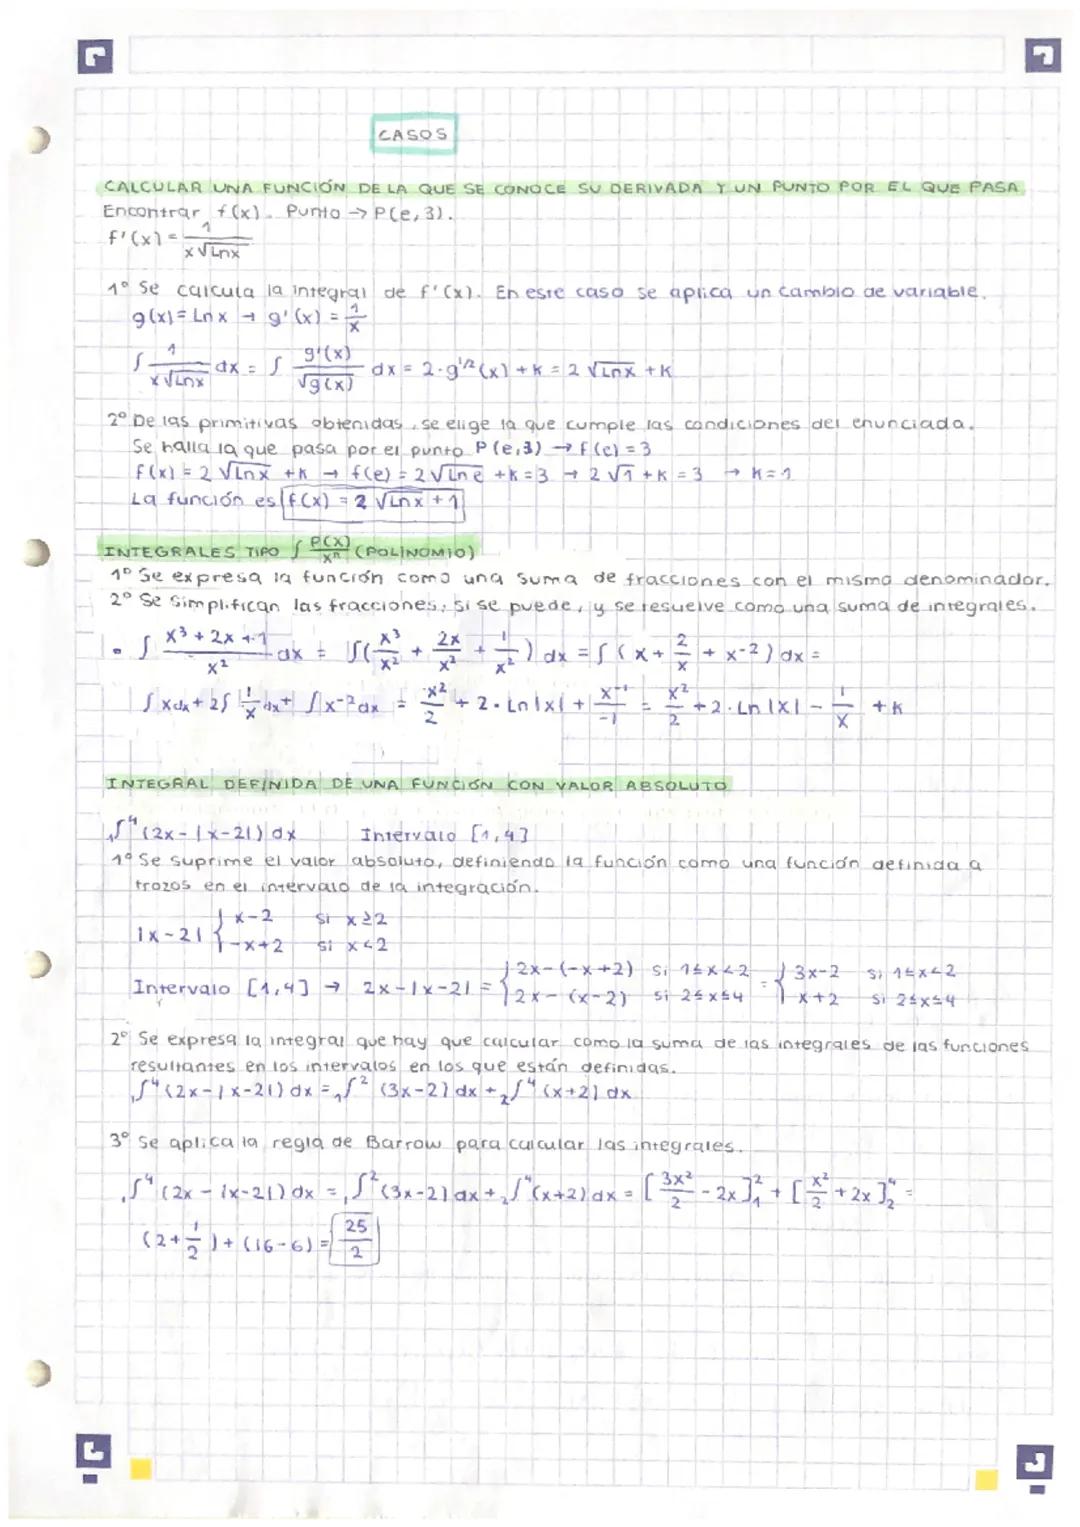 CASOS
CALCULAR UNA FUNCIÓN DE LA QUE SE CONOCE SU DERIVADA Y UN PUNTO POR EL QUE PASA
Encontrar f(x). Punto → P(e, 3).
f'(x) = 1/(x√Lnx)
1º Se calcula la integral de f'(x). En este caso se aplica un cambio de variable.
g(x) = Ln x → g'(x) = 1/x
∫ 1/(x√Lnx) dx = ∫ g'(x)/√g(x) dx = 2·g^1/2(x) + K = 2√Lnx + K
2º De las primitivas obtenidas, se elige la que cumple las condiciones del enunciada.
Se halla la que pasa por el punto P(e,3) → f(e) = 3
f(x) = 2√Lnx + K → f(e) = 2√Ln e + K = 3 → 2√1 + K = 3 → K = 1
La función es f(x) = 2√Lnx + 1
INTEGRALES TIPO ∫ P(X)/Xⁿ (POLINOMIO)
1º Se expresa la función como una suma de fracciones con el mismo denominador.
2º Se simplifican las fracciones, si se puede, y se resuelve como una suma de integrales.
• ∫ (x³ + 2x + 1)/x² dx = ∫(x³/x² + 2x/x² + 1/x²) dx = ∫(x + 2/x + x⁻²) dx =
∫xdx + 2∫1/x dx + ∫x⁻²dx = x²/2 + 2·Ln|x| + x⁻¹/-1 = x²/2 + 2·Ln|x| - 1/x + K
INTEGRAL DEFINIDA DE UNA FUNCIÓN CON VALOR ABSOLUTO
₁∫⁴(2x-|x-2|)dx Intervalo [1,4]
1º Se suprime el valor absoluto, definiendo la función como una función definida a
trozos en el intervalo de la integración.
|x-2| { x-2 si x≥2
-x+2 si x<2
Intervalo [1,4] → 2x-|x-2| = { 2x-(-x+2) si 1≤x<2 = { 3x-2 si 1≤x<2
2x-(x-2) si 2≤x≤4 x+2 si 2≤x≤4
2º Se expresa la integral que hay que calcular como la suma de las integrales de las funciones
resultantes en los intervalos en los que están definidas.
₁∫⁴(2x-|x-2|)dx = ₁∫²(3x-2)dx + ₂∫⁴(x+2)dx
3º Se aplica la regla de Barrow para calcular las integrales.
₁∫⁴(2x-|x-2|)dx = ₁∫²(3x-2)dx + ₂∫⁴(x+2)dx = [3x²/2 - 2x]²₁ + [x²/2 + 2x]⁴₂ =
(2+1/2)+(16-6) = 25/2